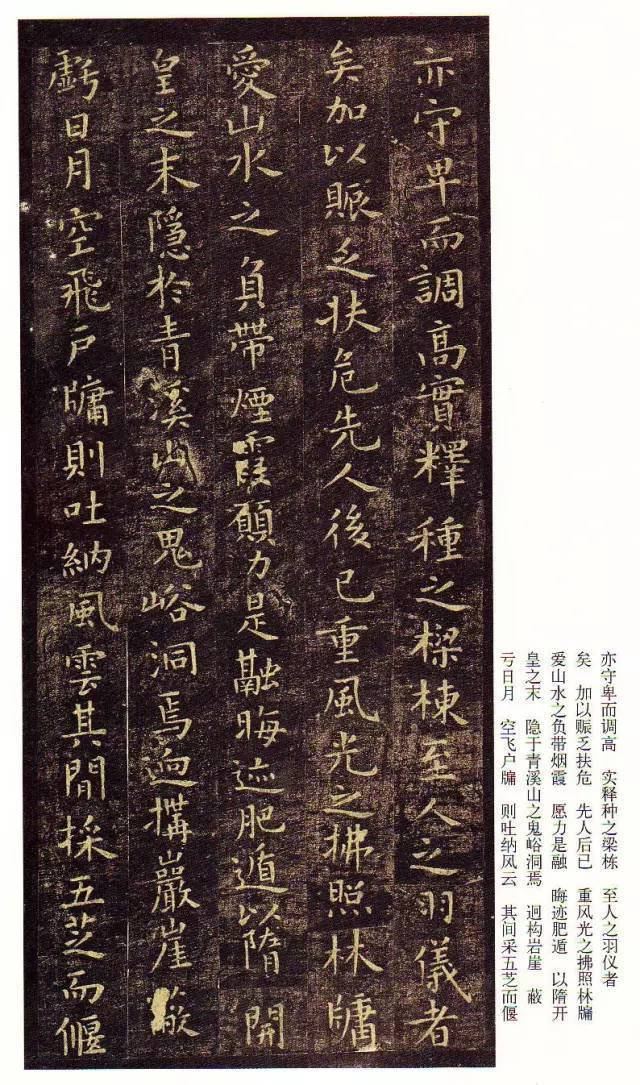 亦守卑而調高實釋種之樑棟至人之羽儀者
矣加以賑乏扶危先人後已重風光之拂照林牗
愛山水之負帶煙霞願力是融晦迹肥遁以隋開
皇之末隱於青溪山之鬼峪洞焉迥搆巖崖蔽
虧日月空飛戶牗則吐納風雲其間採五芝而偃
亦守卑而调高 实释种之梁栋 至人之羽仪者
矣 加以赈乏扶危 先人后已 重风光之拂照林牗
爱山水之负带烟霞 愿力是融 晦迹肥遁 以隋开
皇之末 隐于青溪山之鬼峪洞焉 迥构岩崖 蔽
亏日月 空飞户牗 则吐纳风云 其间采五芝而偃